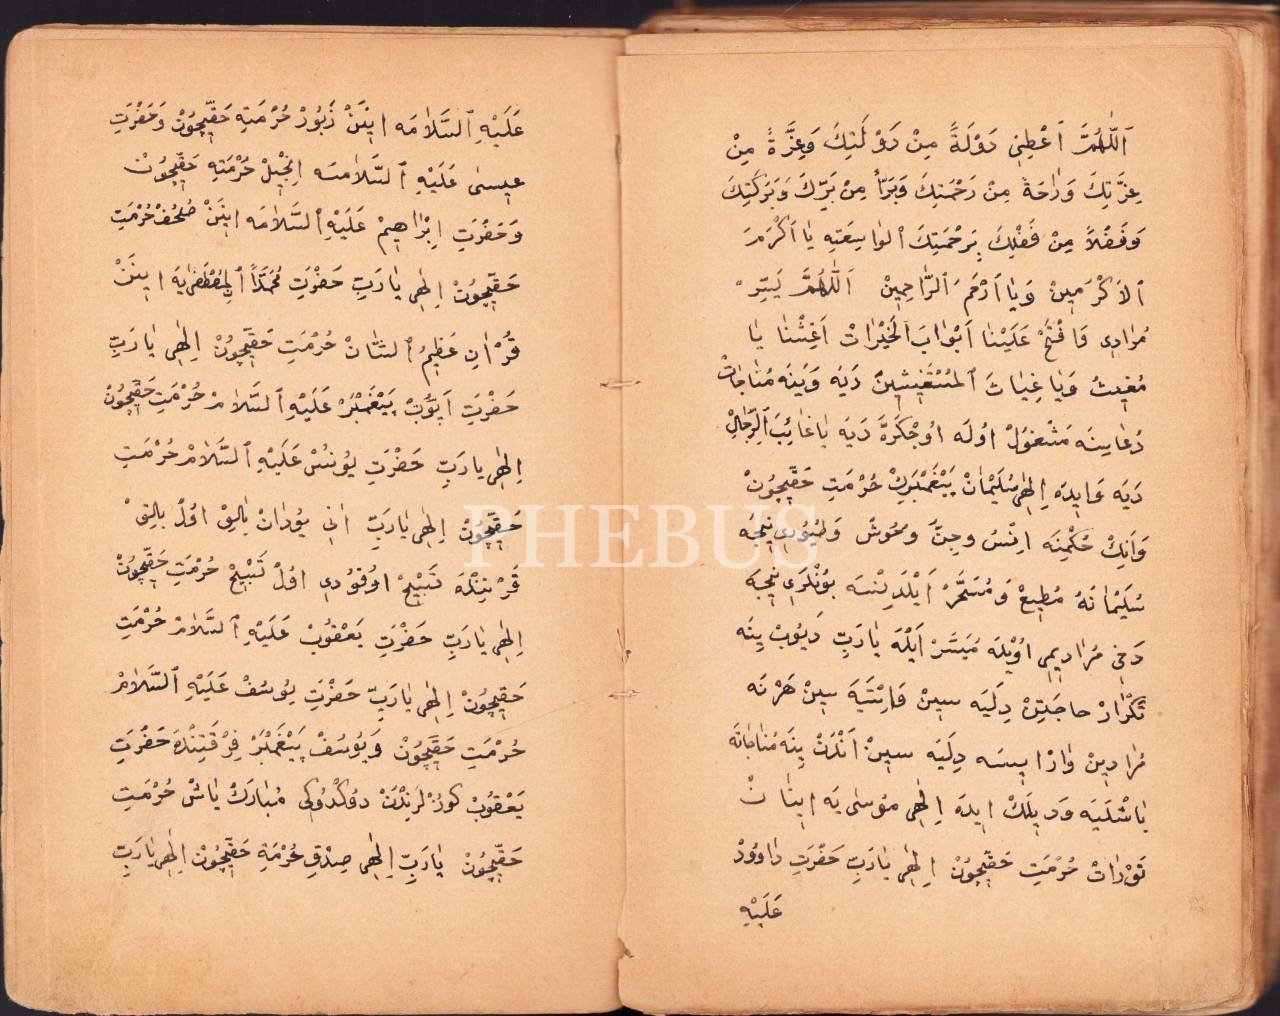 اَللّٰهُمَّ اَعْطِنِي دَوْلَةً مِنْ دَوْلَتِكَ وَعِزَّةً مِنْ
عِزَّتِكَ وَرَاحَةً مِنْ رَحْمَتِكَ وَبَرًّا مِنْ بَرِّكَ وَبَرَكَتِكَ
وَفَضْلاً مِنْ فَضْلِكَ بِرَحْمَتِكَ الوَاسِعَتِهِ يَا اَكْرَمَ
الاَكْرَمِينْ وَيَا اَرْحَمَ الرَّاحِمِينْ اَللّٰهُمَّ يَسِّرْ
مُرَادِى وَافْتَحْ عَلَيْنَا اَبْوَابَ الخَيْرَاتْ اَغِثْنَا يَا
مُغِيثُ وَيَا غِيَاثَ المُسْتَغِيثِينْ دَيَه وَيَنَه مُنَاجَاتْ
دُعَاسِنَه مَشْغُولْ اُولَه اُوچْكَرَّهْ دَيَه يَا غَائِبَ الرِّجَالْ
دَيَه وَايِدَه اِلٰهِى سُلَيْمَانْ پَيْغَمْبَرِكْ حُرْمَتِ حَقِّيچُونْ
وَاَنِكْ حُكْمِنَه اِنْسُ وجِنَّ وَحُوشْ وَطُيُورِى نِيجَه
سُلَيْمَانَهْ مُطِيعْ وَمُسَخَّرْ اَيْلَدِينْسَه بُونْلَرِى نِيجَه
دَخِى مُرَادِيمِى اُويْلَه مُيَسَّرْ اَيْلَه يَارَبِّ دِيُوبْ يِنَه
تَكْرَارْ حَاجَتِنْ دِلَيَه سِينْ وَاِنْتَيَه سِينْ هَرْ نَه
مُرَادِينْ وَارْايِسَه دِلَيَه سِينْ اَنْدَنْ يِنَه مُنَاجَاتَه
بَاشْلَيَه وَدِيلَكْ ايدَه اِلٰهِى مُوسٰى يَه اِينَانْ
تَوْرَاتْ حُرْمَتِ حَقِّيچُونْ اِلٰهِى يَارَبِّ حَضْرَتِ دَاوُودْ
عَلَيْهِ
عَلَيْهِ السَّلَامَه اِينَنْ زَبُورْ حُرْمَتِهِ حَقِّيچُونْ وَحَضْرَتِ
عِيسٰى عَلَيْهِ السَّلَامَسَه اِنْجِيلْ حُرْمَتِهِ حَقِّيچُونْ
وَحَضْرَتِ اِبْرَاهِيمْ عَلَيْهِ السَّلَامَه اِينَنْ صُحُفْ حُرْمَتِ
حَقِّيچُونْ اِلٰهِى يَارَبِّ حَضْرَتِ مُحَمَّدًا المُصْطَفٰى يَه اِينَنْ
قُرْاٰنِ عَظِيمُ الشَّانْ حُرْمَتِ حَقِّيچُونْ اِلٰهِى يَارَبِّ
حَضْرَتِ اَيُّوبْ پَيْغَمْبَرْ عَلَيْهِ السَّلَامْ حُرْمَتِ حَقِّيچُونْ
اِلٰهِى يَارَبِّ حَضْرَتِ يُونُسْ عَلَيْهِ السَّلَامْ حُرْمَتِ
حَقِّيچُونْ اِلٰهِى يَارَبِّ اَنِى يُودَانْ بَالِقْ اُولْ بَالِقْ
قَرْنِنْدَه تَسْبِيحْ اُوقُودِى اُولْ تَسْبِيحْ حُرْمَتِ حَقِّيچُونْ
اِلٰهِى يَارَبِّ حَضْرَتِ يَعْقُوبْ عَلَيْهِ السَّلَامْ حُرْمَتِ
حَقِّيچُونْ اِلٰهِى يَارَبِّ حَضْرَتِ يُوسُفْ عَلَيْهِ السَّلَامْ
حُرْمَتِ حَقِّيچُونْ وَيُوسُفْ پَيْغَمْبَرْ فِرْقَتِنْدَه حَضْرَتِ
يَعْقُوبْ كُوزْلَرِنْدَنْ دُوكْدُوكِى مُبَارَكْ يَاشْ حُرْمَتِ
حَقِّيچُونْ يَارَبِّ اِلٰهِى صِدْقِ حُرْمَةِ حَقِّيچُونْ اِلٰهِى يَارَبِّ
PHEBUS